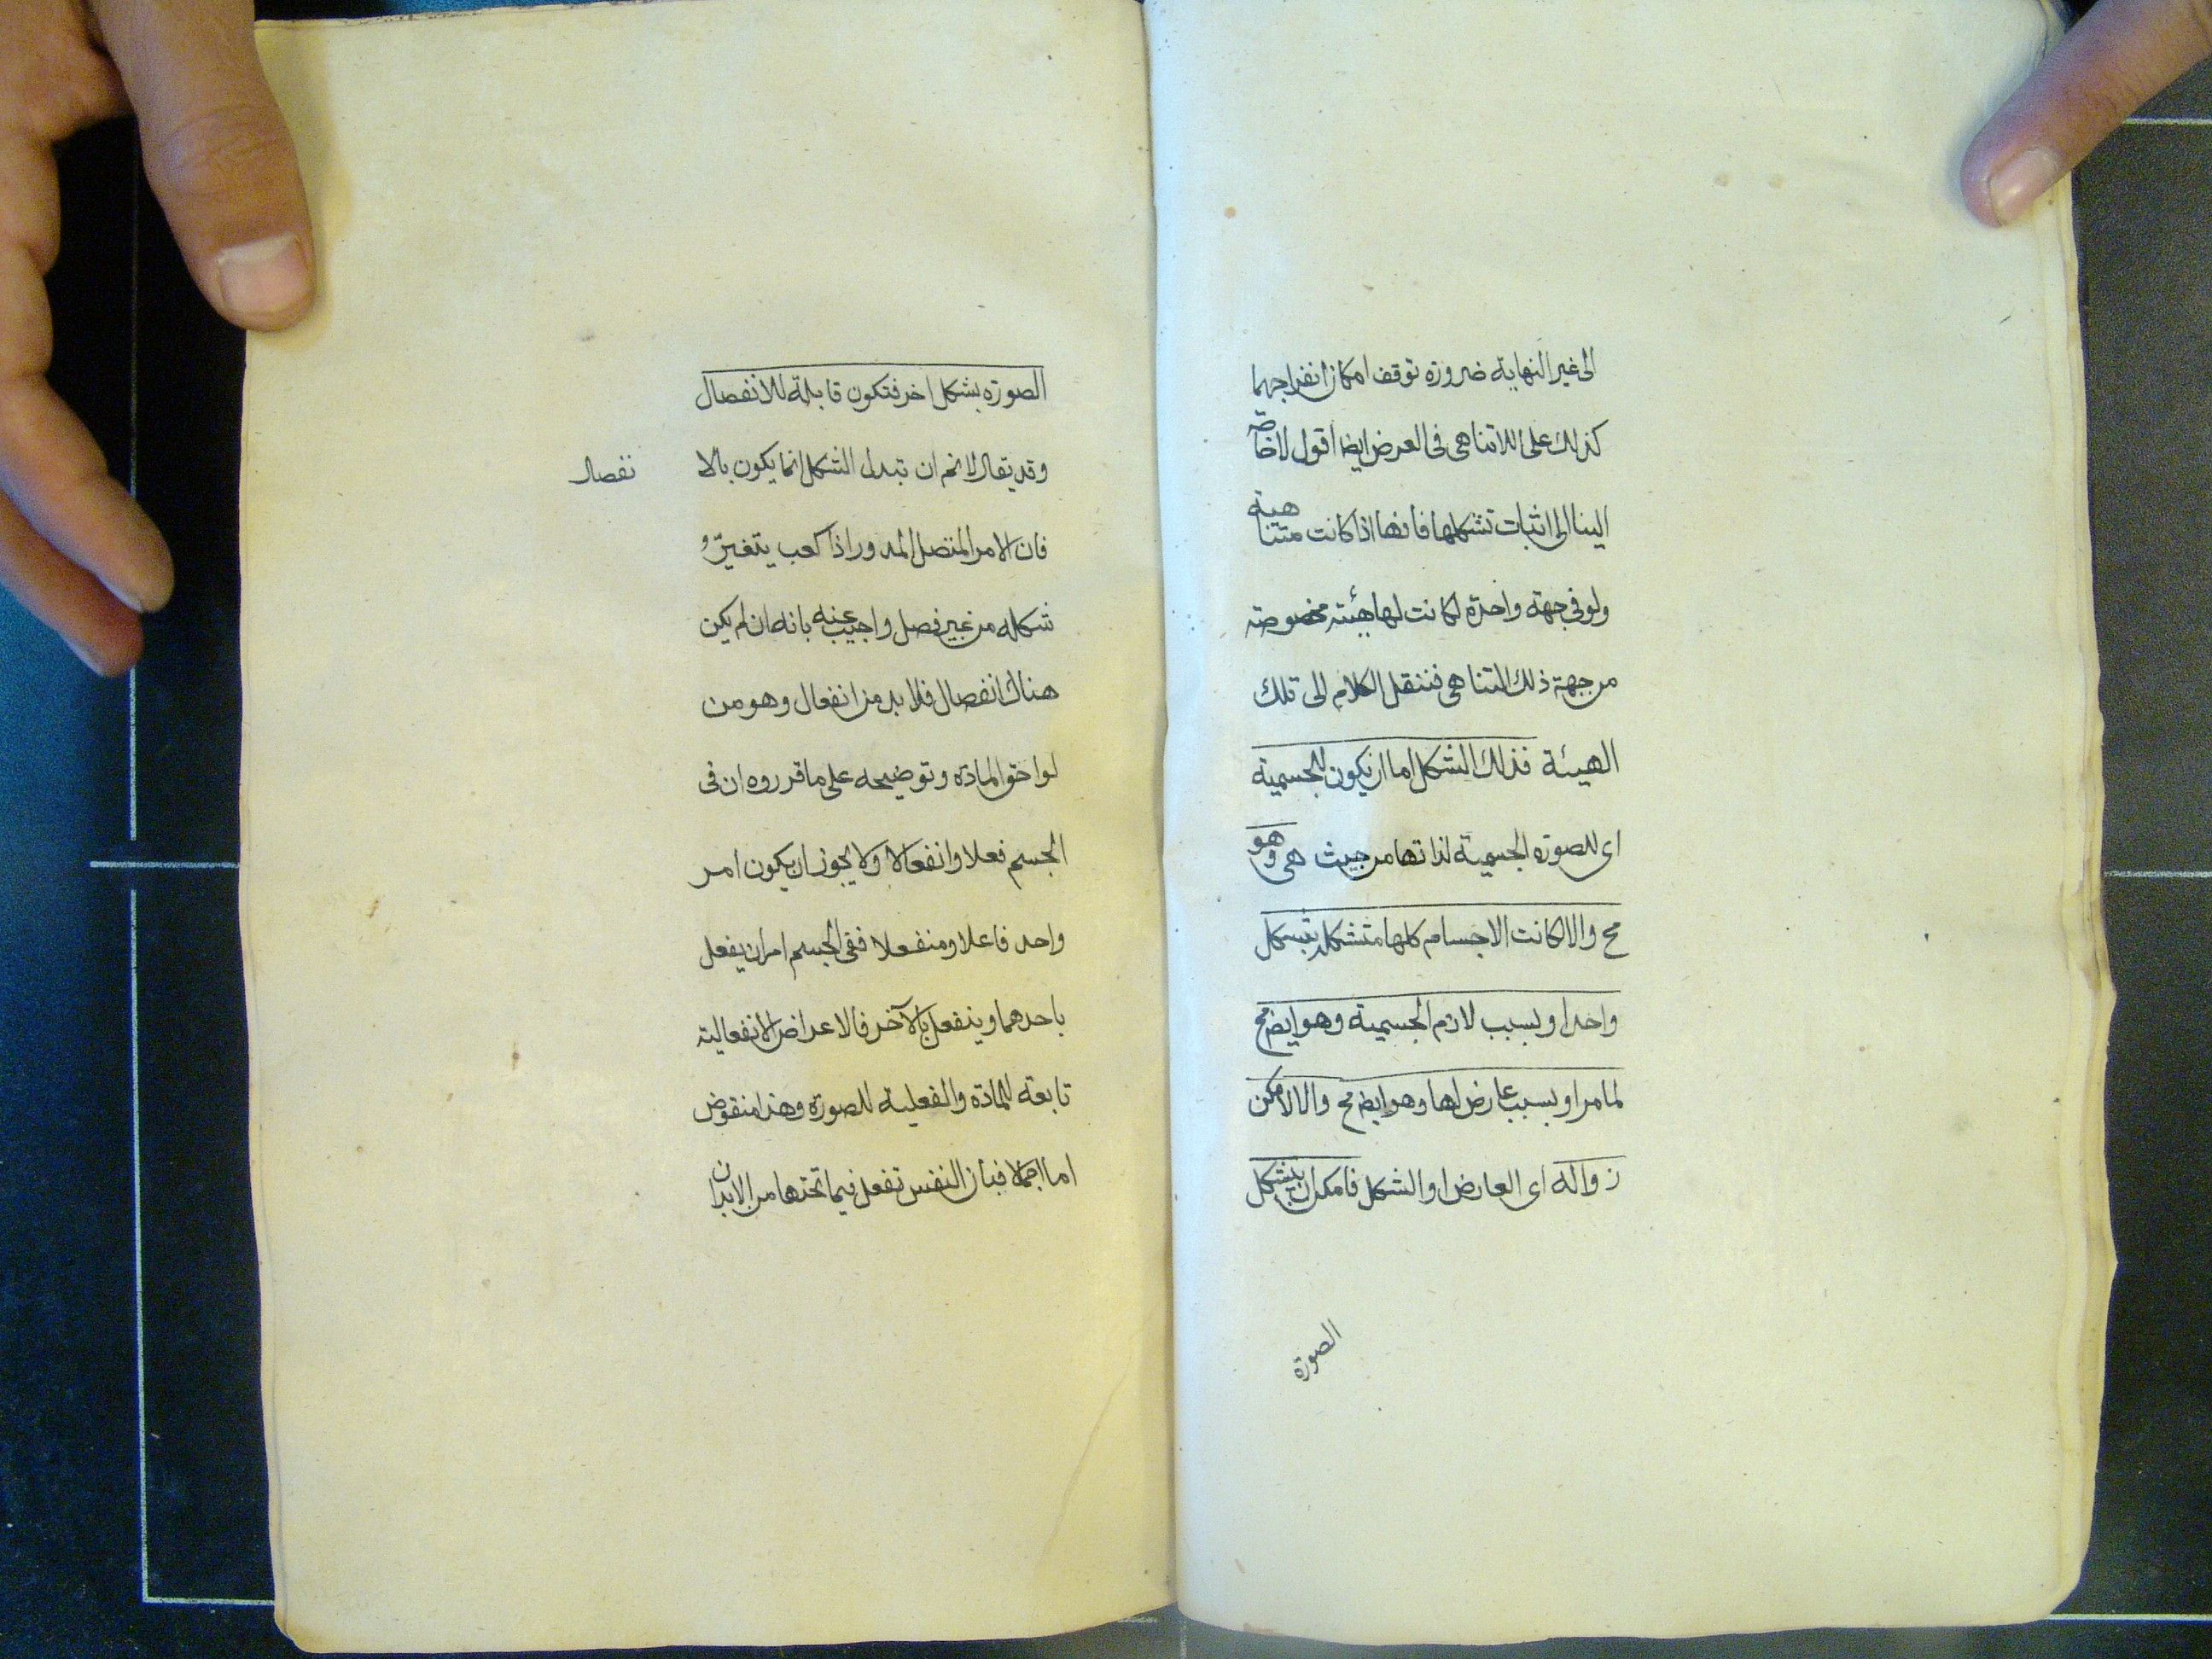 الى غير النهاية ضرورة توقف امكان انفراجهما
كذلك على اللاتناهى فى العرض ايضا اقول لا خاصة
الينا الى اثبات تشكلها فانها اذا كانت متناهية
ولو فى جهة واحدة لكانت لها هيئة مخصوصة
من جهة ذلك التناهى فننقل الكلام الى تلك
الهيئة فذلك الشكل اما ان يكون للجسمية
اى للصورة الجسمية لذاتها من حيث هى وهو
مح والا لكانت الاجسام كلها متشكلة بشكل
واحد او بسبب لازم الجسمية وهو ايض مح
لما مر او بسبب عارض لها وهو ايض مح والا لامكن
زواله اى العارض او الشكل فامكن ان يتشكل
الصورة
الصورة بشكل اخر فتكون قابلة للانفصال
وقد يقال لا نم ان تبدل الشكل انما يكون بالا نفصال
فان الامر المتصل المدور اذا كعب يتغير و
شكله من غير فصل واجيب عنه بانه ان لم يكن
هناك انفصال فلا بد من انفعال وهو من
لواحق المادة وتوضيحه على ما قرروه ان فى
الجسم فعلا وانفعالا ولا يجوز ان يكون امر
واحد فاعلا ومنفعلا ففى الجسم امران يفعل
باحدهما وينفعل بالآخر فالاعراض الانفعالية
تابعة للمادة والفعلية للصورة وهذا منقوض
اما اجمالا فبان النفس تفعل فيما تحتها من الابدان